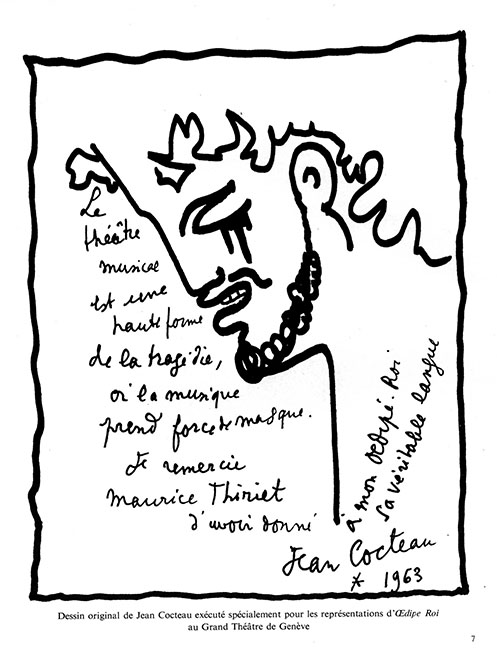 Le
théâtre
musical
est une
haute forme
de la tragédie,
où la musique
prend force de masque.
Je remercie
Maurice Thiriet
d'avoir donné
à mon Oedipe-Roi
sa véritable langue
Jean Cocteau
* 1963
Dessin original de Jean Cocteau exécuté spécialement pour les représentations d'Œdipe Roi
au Grand Théâtre de Genève
7